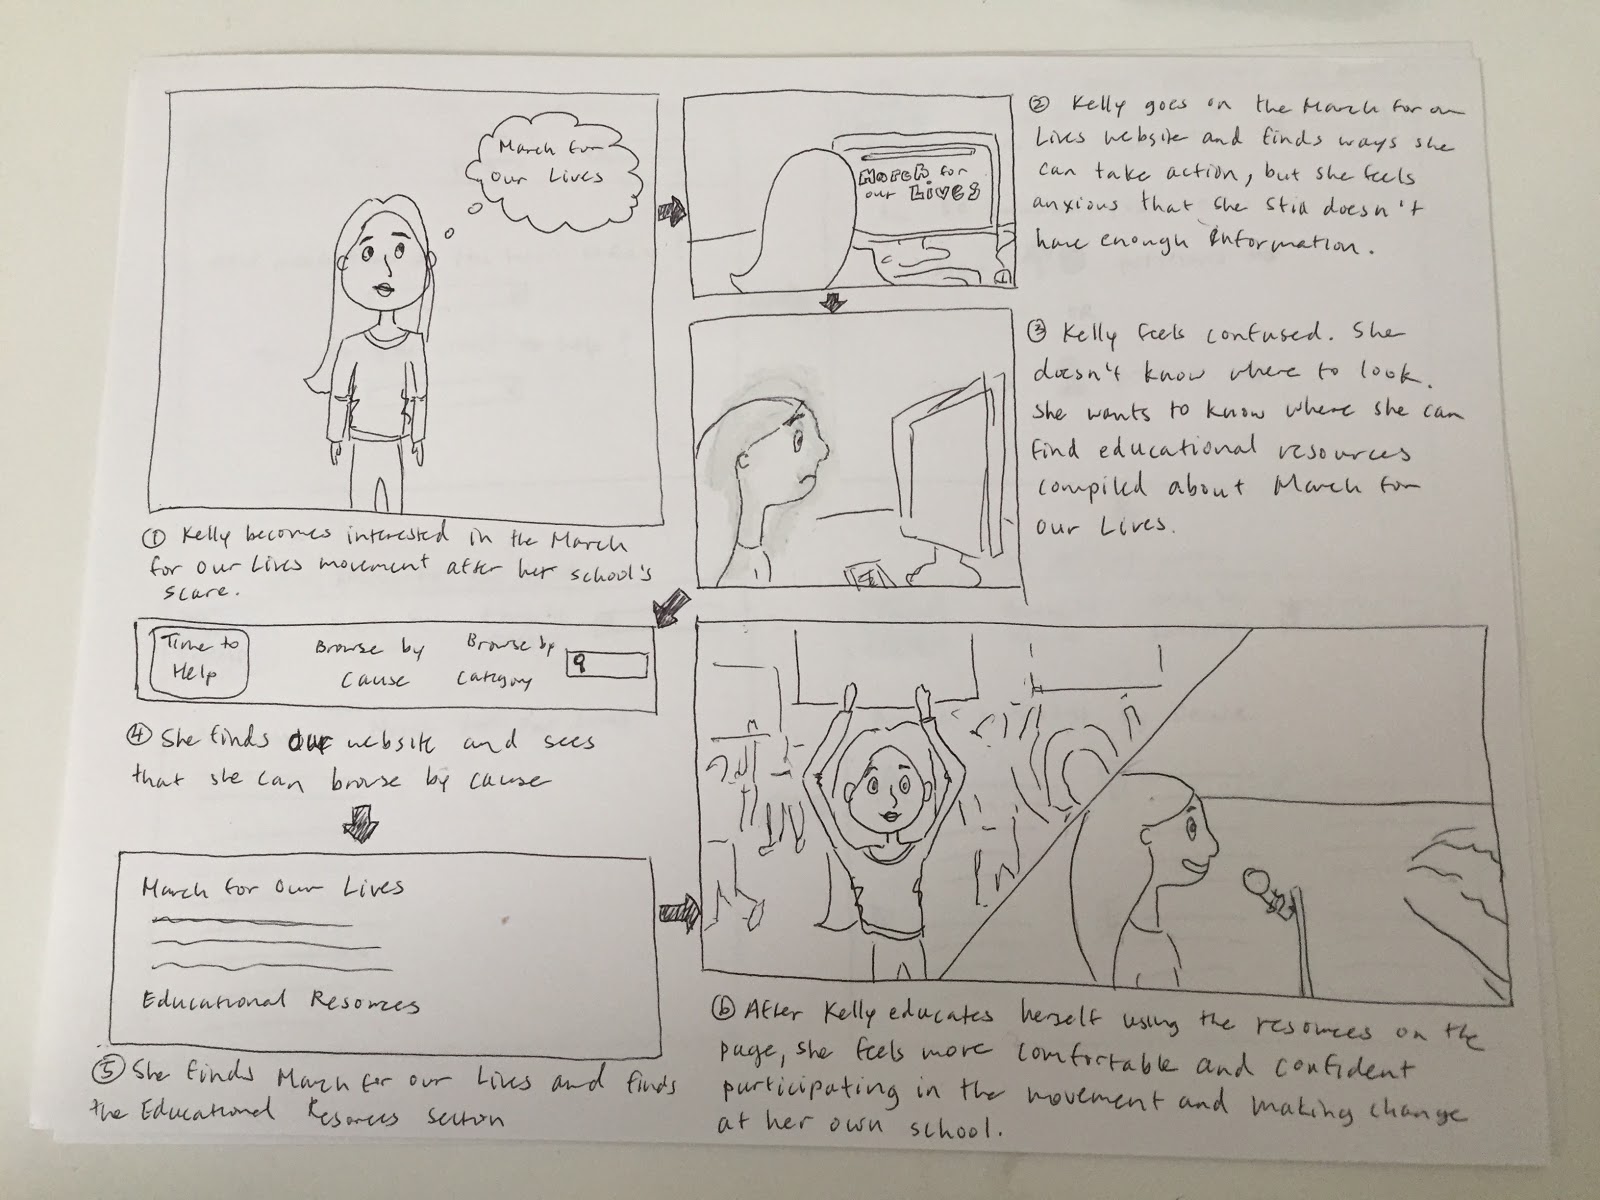 March for
our Lives
① Kelly becomes interested in the March
for our Lives movement after her school's
scare.
March for
our Lives
② Kelly goes on the March for our
Lives website and finds ways she
can take action, but she feels
anxious that she still doesn't
have enough information.
③ Kelly feels confused. She
doesn't know where to look.
She wants to know where she can
find educational resources
compiled about March for
our Lives.
Time to
Help
Browse by
Cause
Browse by
Category
④ She finds our website and sees
that she can browse by cause
March for Our Lives
Educational Resources
⑤ She finds March for our Lives and finds
the Educational Resources section
⑥ After Kelly educates herself using the resources on the
page, she feels more comfortable and confident
participating in the movement and making change
at her own school.